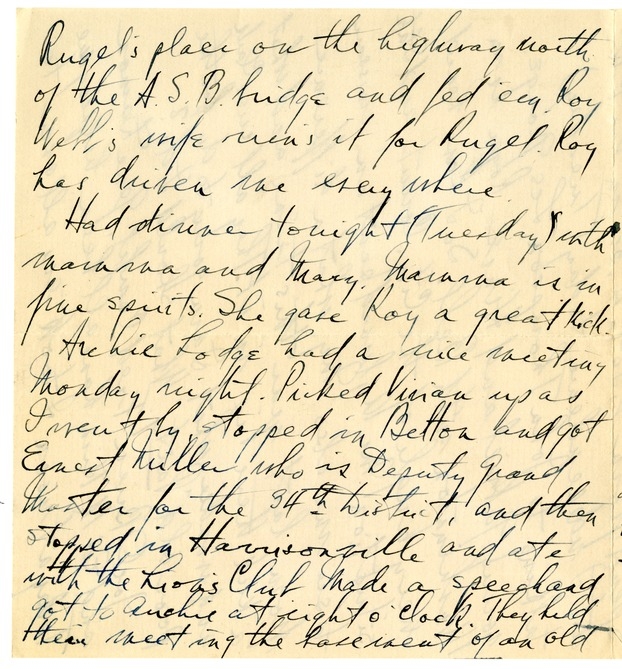 Rugel's place on the highway north
of the A.S.B. bridge and fed 'em. Roy
Webb's wife runs it for Rugel. Roy
has driven me everywhere.
Had dinner tonight (Tuesday) with
mamma and Mary. Mamma is in
fine spirits. She gave Roy a great kick.
Archie Lodge had a nice meeting
Monday night. Picked Vivian up as
I went by, stopped in Belton and got
Ernest Miller who is Deputy Grand
Master for the 34th District, and then
stopped in Harrisonville and ate
with the Lions Club. Made a speech and
got to Archie at eight o'clock. They held
their meeting the basement of an old